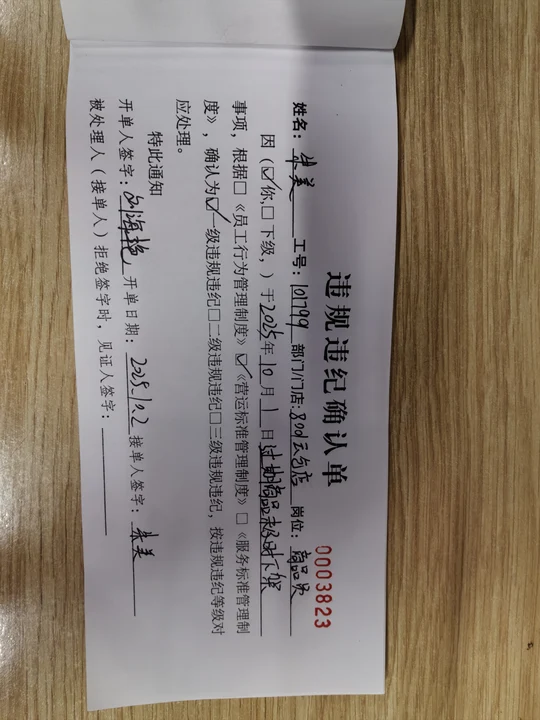 违规违纪确认单
0003823
姓名：朱美 工号：101799 部门/门店：800云台店 岗位：商品员
因（☑你，□下级，）于2025年10月1日过期商品未及时下架
事项，根据□《员工行为管理制度》☑《营运标准管理制度》□《服务标准管理制
度》，确认为☑一级违规违纪□二级违规违纪□三级违规违纪，按违规违纪等级对
应处理。
特此通知
开单人签字：刘海艳 开单日期：2025.10.2 接单人签字：朱美
被处理人（接单人）拒绝签字时，见证人签字：